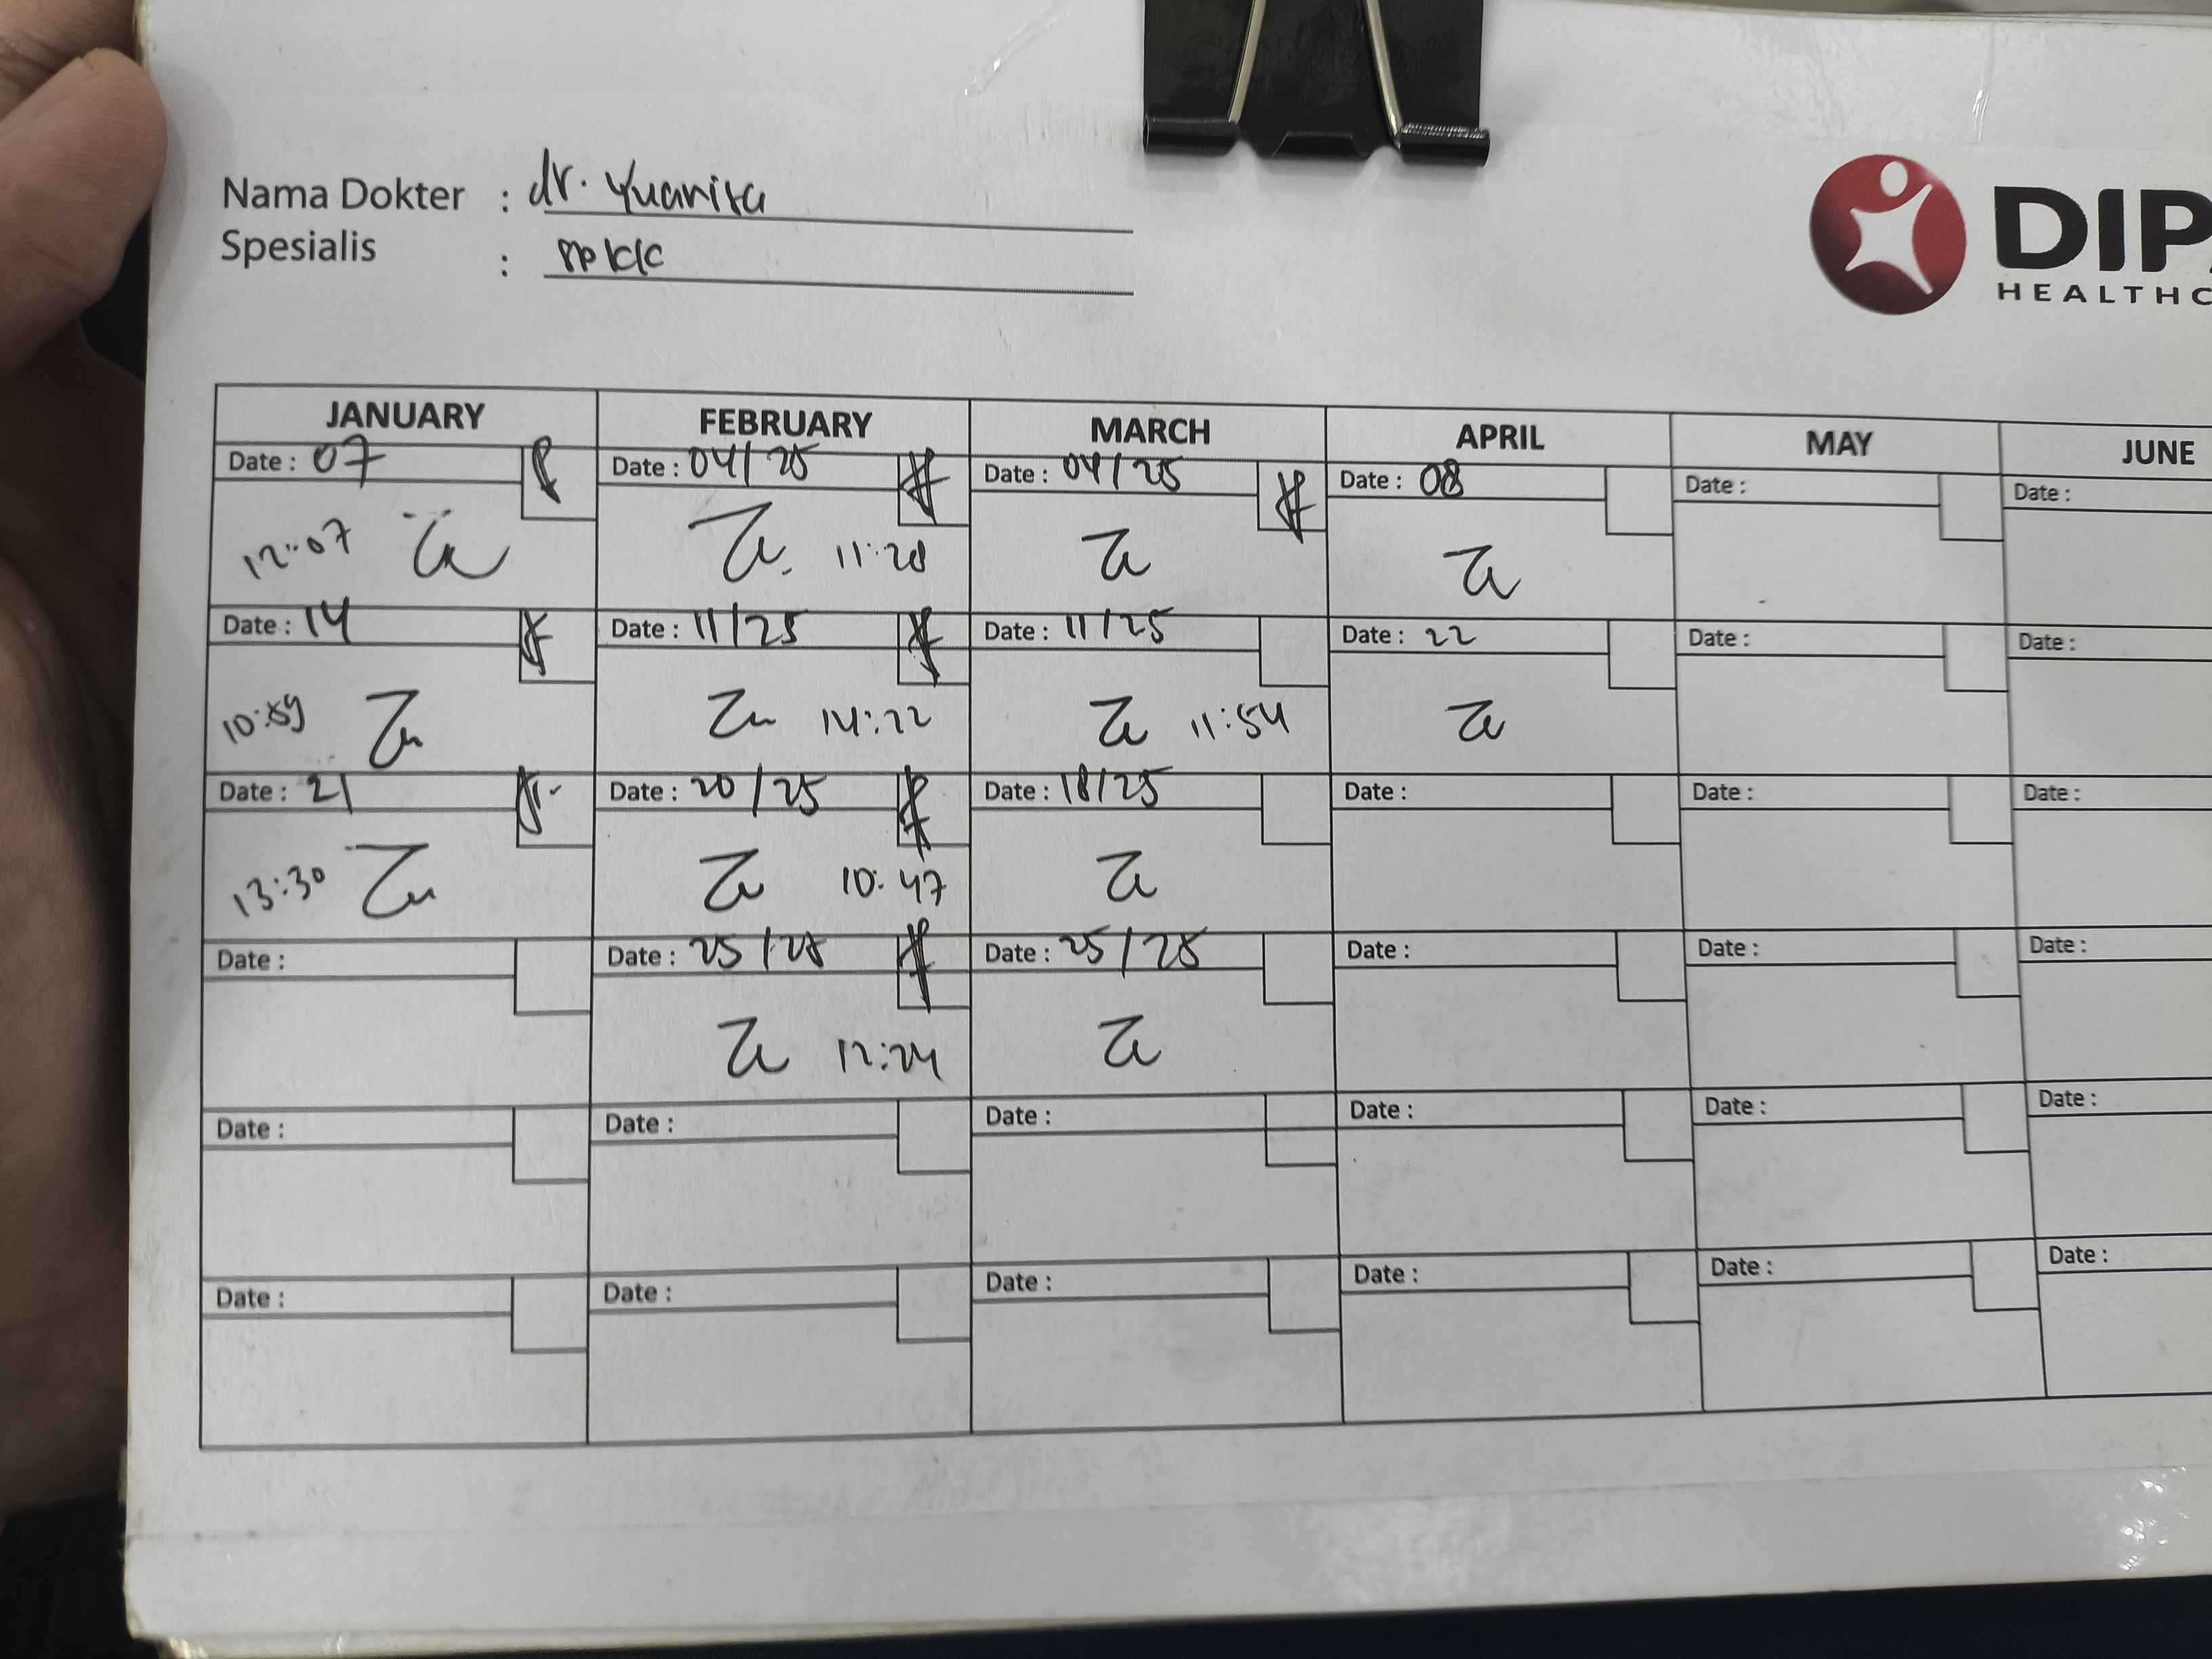 Nama Dokter : dr. Yuanita
Spesialis : SpKK
DIP
HEALTHC
JANUARY FEBRUARY MARCH APRIL MAY JUNE
Date : 07 Date : 04/25 Date : 04/25 Date : 08 Date : Date :
12:07 11:28
Date : 14 Date : 11/25 Date : 11/25 Date : 22 Date : Date :
10:59 14:22 11:54
Date : 21 Date : 20/25 Date : 18/25 Date : Date : Date :
13:30 10:47
Date : Date : 25/25 Date : 25/25 Date : Date : Date :
12:24
Date : Date : Date : Date : Date : Date :
Date : Date : Date : Date : Date : Date :